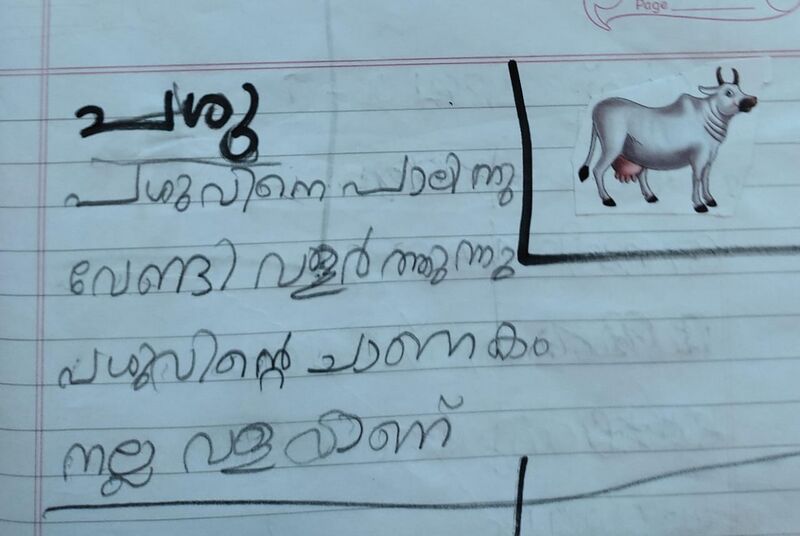 Page
പശു
പശുവിനെ പാലിനു
വേണ്ടി വളർത്തുന്നു
പശുവിന്റെ ചാണകം
നല്ല വളമാണ്